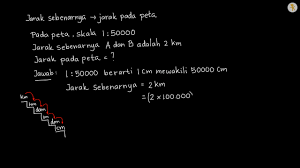 Jarak sebenarnya → jarak pada peta
Pada peta, skala 1 : 50000
Jarak sebenarnya A dan B adalah 2 km
Jarak pada peta = ?
Jawab: 1 : 50000 berarti 1 cm mewakili 50000 cm
Jarak sebenarnya = 2 km
= (2 x 100.000)
km
hm
dam
m
dm
cm